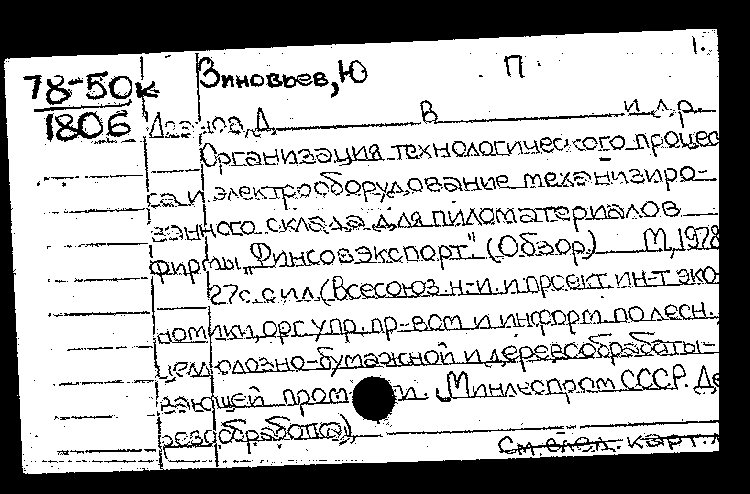 1.
78-50к Зиновьев, Ю П
1806 Д. В и др.
Организация технологического процес
са и электрооборудование механизиро-
ванного склада для пиломатериалов
фирмы „Финсовэкспорт". (Обзор) М, 1978
27с. с ил. (Всесоюз. н-и. и проект. ин-т эко
номики, орг. упр. пр-вом и информ. по лесн.,
целлюлозно-бумажной и деревообрабаты-
вающей пром и. Минлеспром СССР. Де
ревообработка)
См. след. карт.